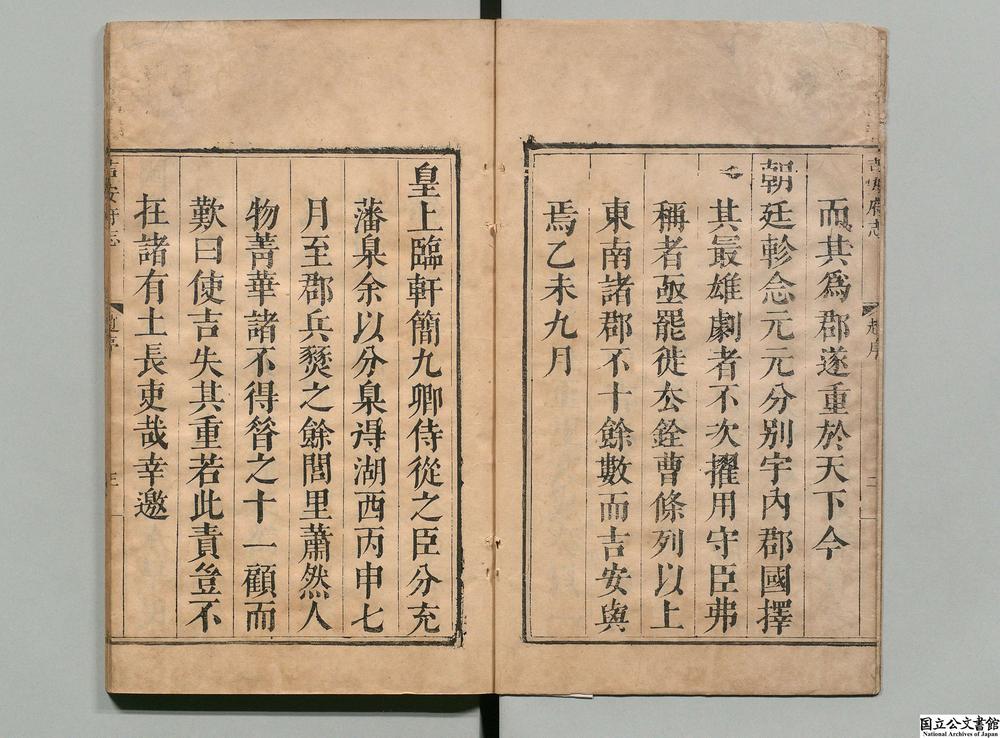 而其為郡遂重於天下今
朝廷軫念元元分別宇內郡國擇
其最雄劇者不次擢用守臣弗
稱者亟罷徙公銓曹條列以上
東南諸郡不十餘數而吉安與
焉乙未九月
皇上臨軒簡九卿侍從之臣分充
藩臬余以分臬得湖西丙申七
月至郡兵燹之餘閭里蕭然人
物菁華諸不得昝之十一顧而
歎曰使吉失其重若此責豈不
在諸有土長吏哉幸邀
吉安府志
趙序
二
吉安府志
趙序
国立公文書館
National Archives of Japan